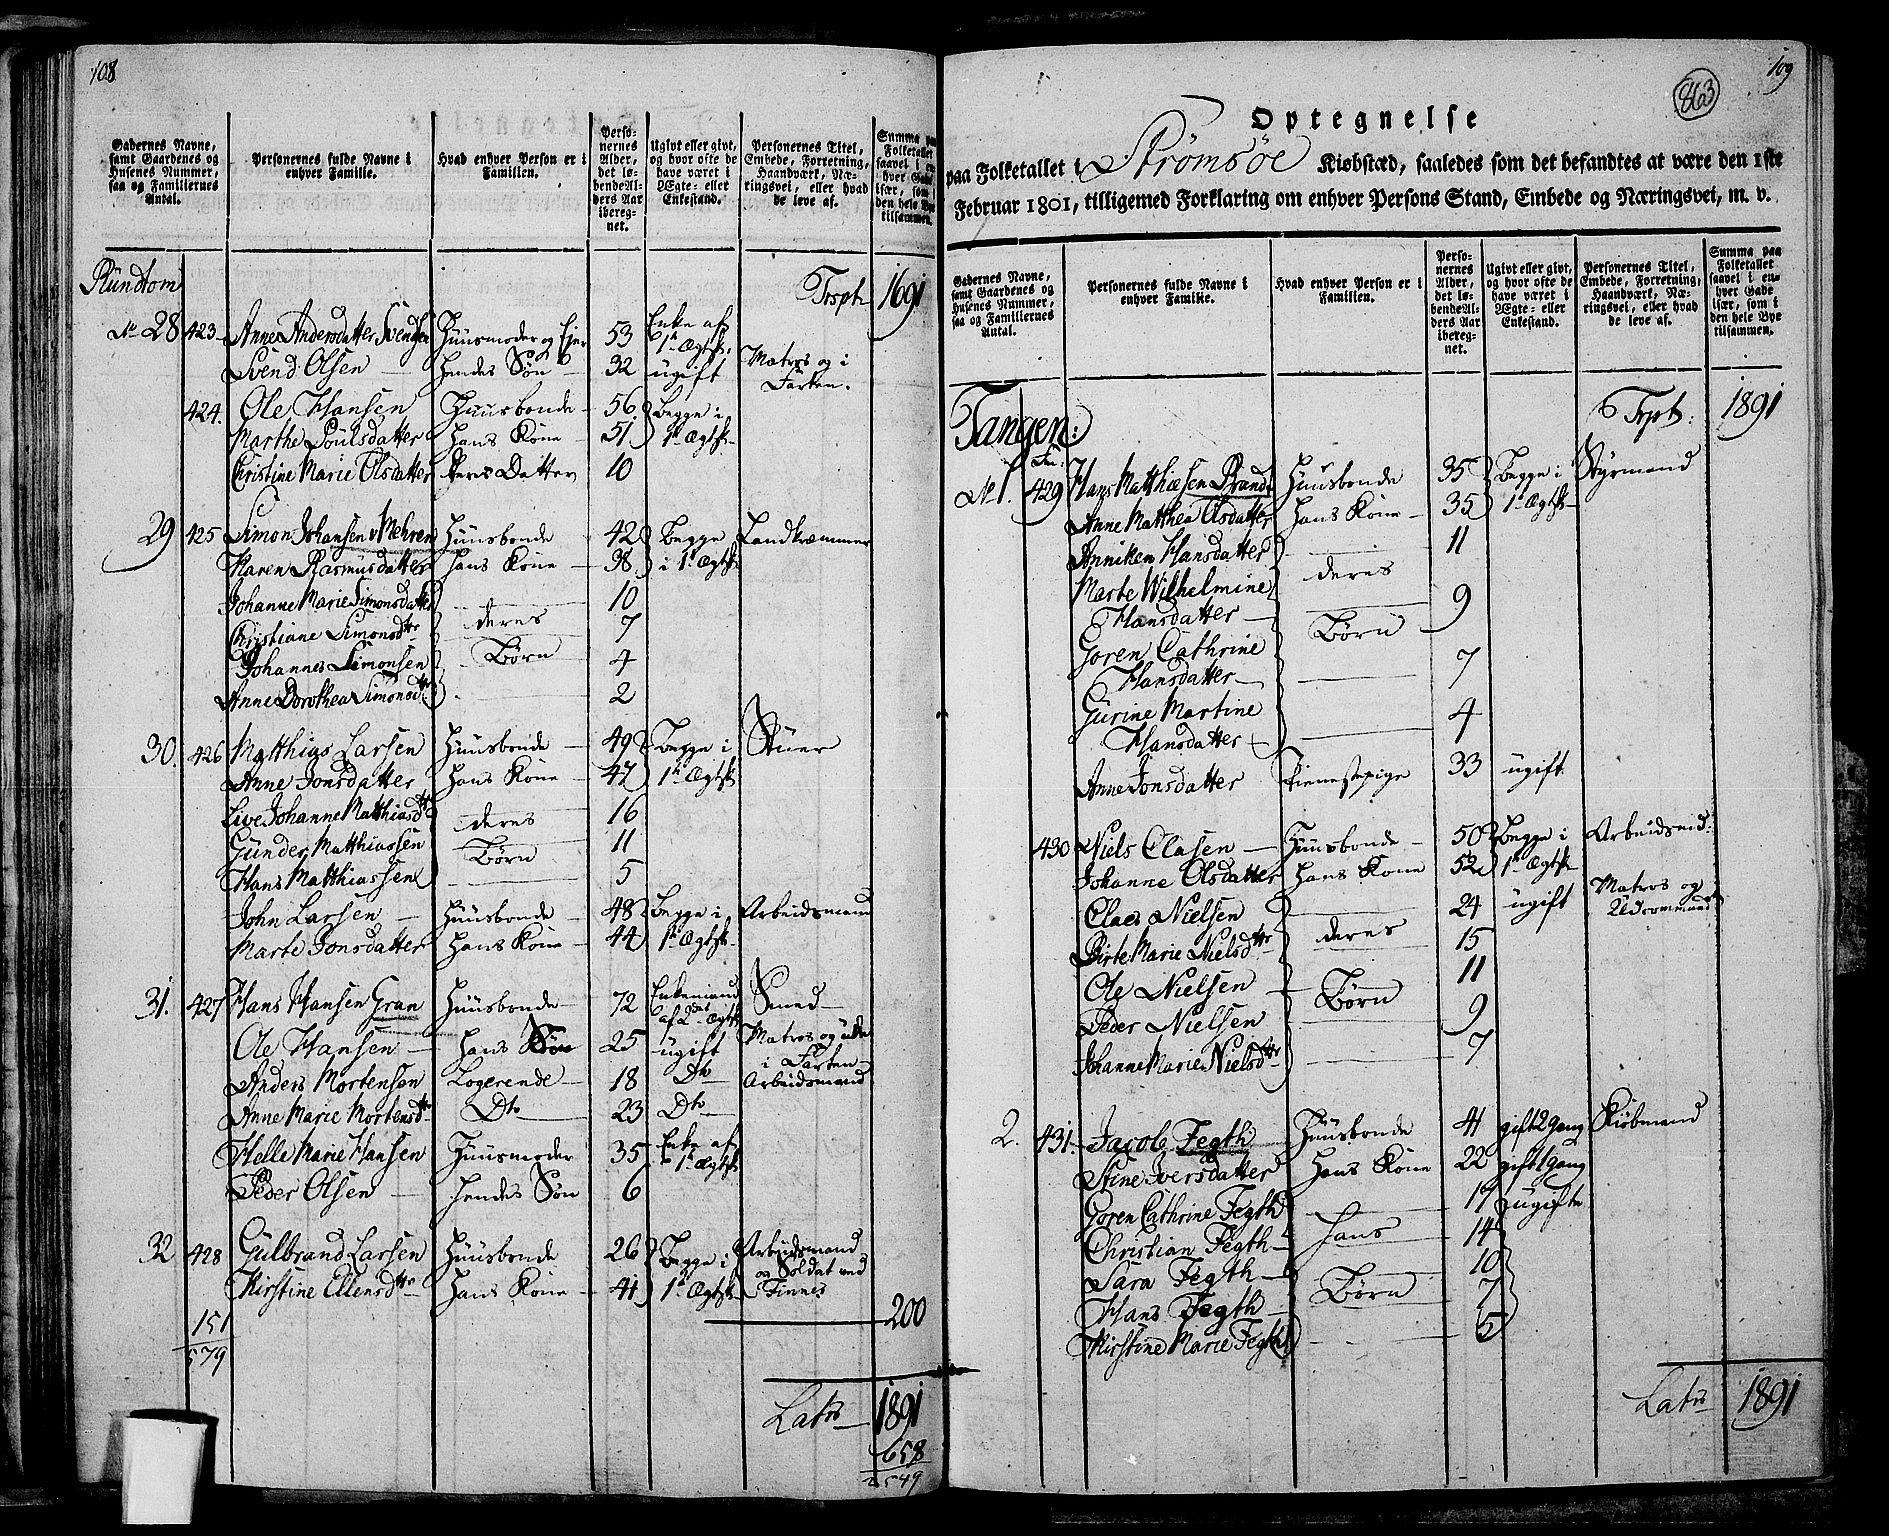 108
Gadernes Navne, samt Gaardenes og Husenes Nummer, saa og Familiernes Antal.
Personernes fulde Navne i enhver Familie.
Hvad enhver Person er i Familien.
Personernes Alder, det løbendeAlders Aar iberegnet.
Ugivt eller givt, og hvor ofte de have været i Ægte- eller Enkestand.
Personernes Titel, Embede, Forretning, Haandværk, Næringsvei, eller hvad de leve af.
Summa paa Folketallet saavel i enhver Gade især, som i den hele Bye tilsammen.
Rundtom Trspt 1691
No 28 423 Anne Andersdatter Svendsen Huusmoder og Ejer 53 Enke af 1te Ægtsk.
Svend Olsen hendes Søn 32 ugift Matros og i Farten.
424. Ole Hansen Huusbonde 56 Begge i
Marthe Poulsdatter hans Kone 51 1te Ægtsk
Christine Marie Olsdatter deres Datter 10
29 425 Simon Johansen v Mehren Huusbonde 42 Begge Landkræmmer
Karen Rasmusdatter hans Kone 38 i 1te Ægtsk
Johanne Marie Simonsdatter 10
Christiane Simonsdtr deres 7
Johannes Simonsen Børn 4
Anne Dorothea Simonsdtr 2
30. 426 Matthias Larsen Huusbonde 49 Begge i Stuer
Anne Jonsdatter hans Kone 47 1te Ægtsk
Live Johanne Matthiasdtr deres 16
Gunder Matthiassen Børn 11
Hans Matthiassen 5
John Larsen Huusbonde 48 Begge i Arbeidsmand
Marte Jonsdatter hans Kone 44 1te Ægtsk
31. 427 Hans Hansen Gran Huusbonde 72 Enkemand af 2det Ægtsk Smed
Ole Hansen hans Søn 25 ugift Matros og ude i Farten
Anders Mortensen Logerende 18 Do Arbeidsmand
Anne Marie Mortensdtr Dto 23 Dto
Helle Marie Hansen Huusmoder 35 Enke af 1te Ægtsk
Peder Olsen hendes Søn 6
32 428 Gulbrand Larsen Huusbonde 26 Begge i Arbeidsmand og Soldat ved
Kirstine Ellensdtr hans Kone 41 1te Ægtsk Finnes
151 200
579
Latus 1891
658
2549
109
863
Optegnelse
paa Folketallet i Strømsøe Kiøbstæd, saaledes som det befandtes at være den 1ste
Februar 1801, tilligemed Forklaring om enhver Persons Stand, Embede og Næringsvei, m. v.
Gadernes Navne, samt Gaardenes og Husenes Nummer, saa og Familiernes Antal.
Personernes fulde Navne i enhver Familie.
Hvad enhver Person er i Familien.
Personernes Alder, det løbendeAlders Aar iberegnet.
Ugivt eller givt, og hvor ofte de have været i Ægte- eller Enkestand.
Personernes Titel, Embede, Forretning, Haandværk, Næringsvei, eller hvad de leve af.
Summa paa Folketallet saavel i enhver Gade især, som i den hele Bye tilsammen.
Tangen: Trpt: 1891
Fm:
No 1. 429 Hans Matthiesen Brandt Huusbonde 35 Begge i Styrmand
Anne Matthea Olsdatter hans Kone 35 1te Ægtsk
Anniken Hansdatter 11
Marte Wilhelmine deres 9
Hansdatter
Goren Cathrine Børn 7
Hansdatter
Gurine Martine 4
Hansdatter
Anne Jonsdatter Tienestepige 33 ugift
430 Niels Clasen Huusbonde 50 Begge i Arbeidsmd:
Johanne Olsdatter hans Kone 52 1te Ægtsk
Claes Nielsen 24 ugift Matros og
Birte Marie Nielsdtr deres 15
Ole Nielsen Børn 11
Peder Nielsen 9
Johanne Marie Nielsdtr 7
2. 431. Jacob Fegth Huusbonde 41 gift 2 gang Kiøbmand
Stine Iversdatter hans Kone 22 gift 1 gang
Goren Cathrine Fegth 17 ugifte
Christian Fegth hans 14
Sara Fegth 10
Hans Fegth Børn 7
Kirstine Marie Fegth 5
Latus 1891